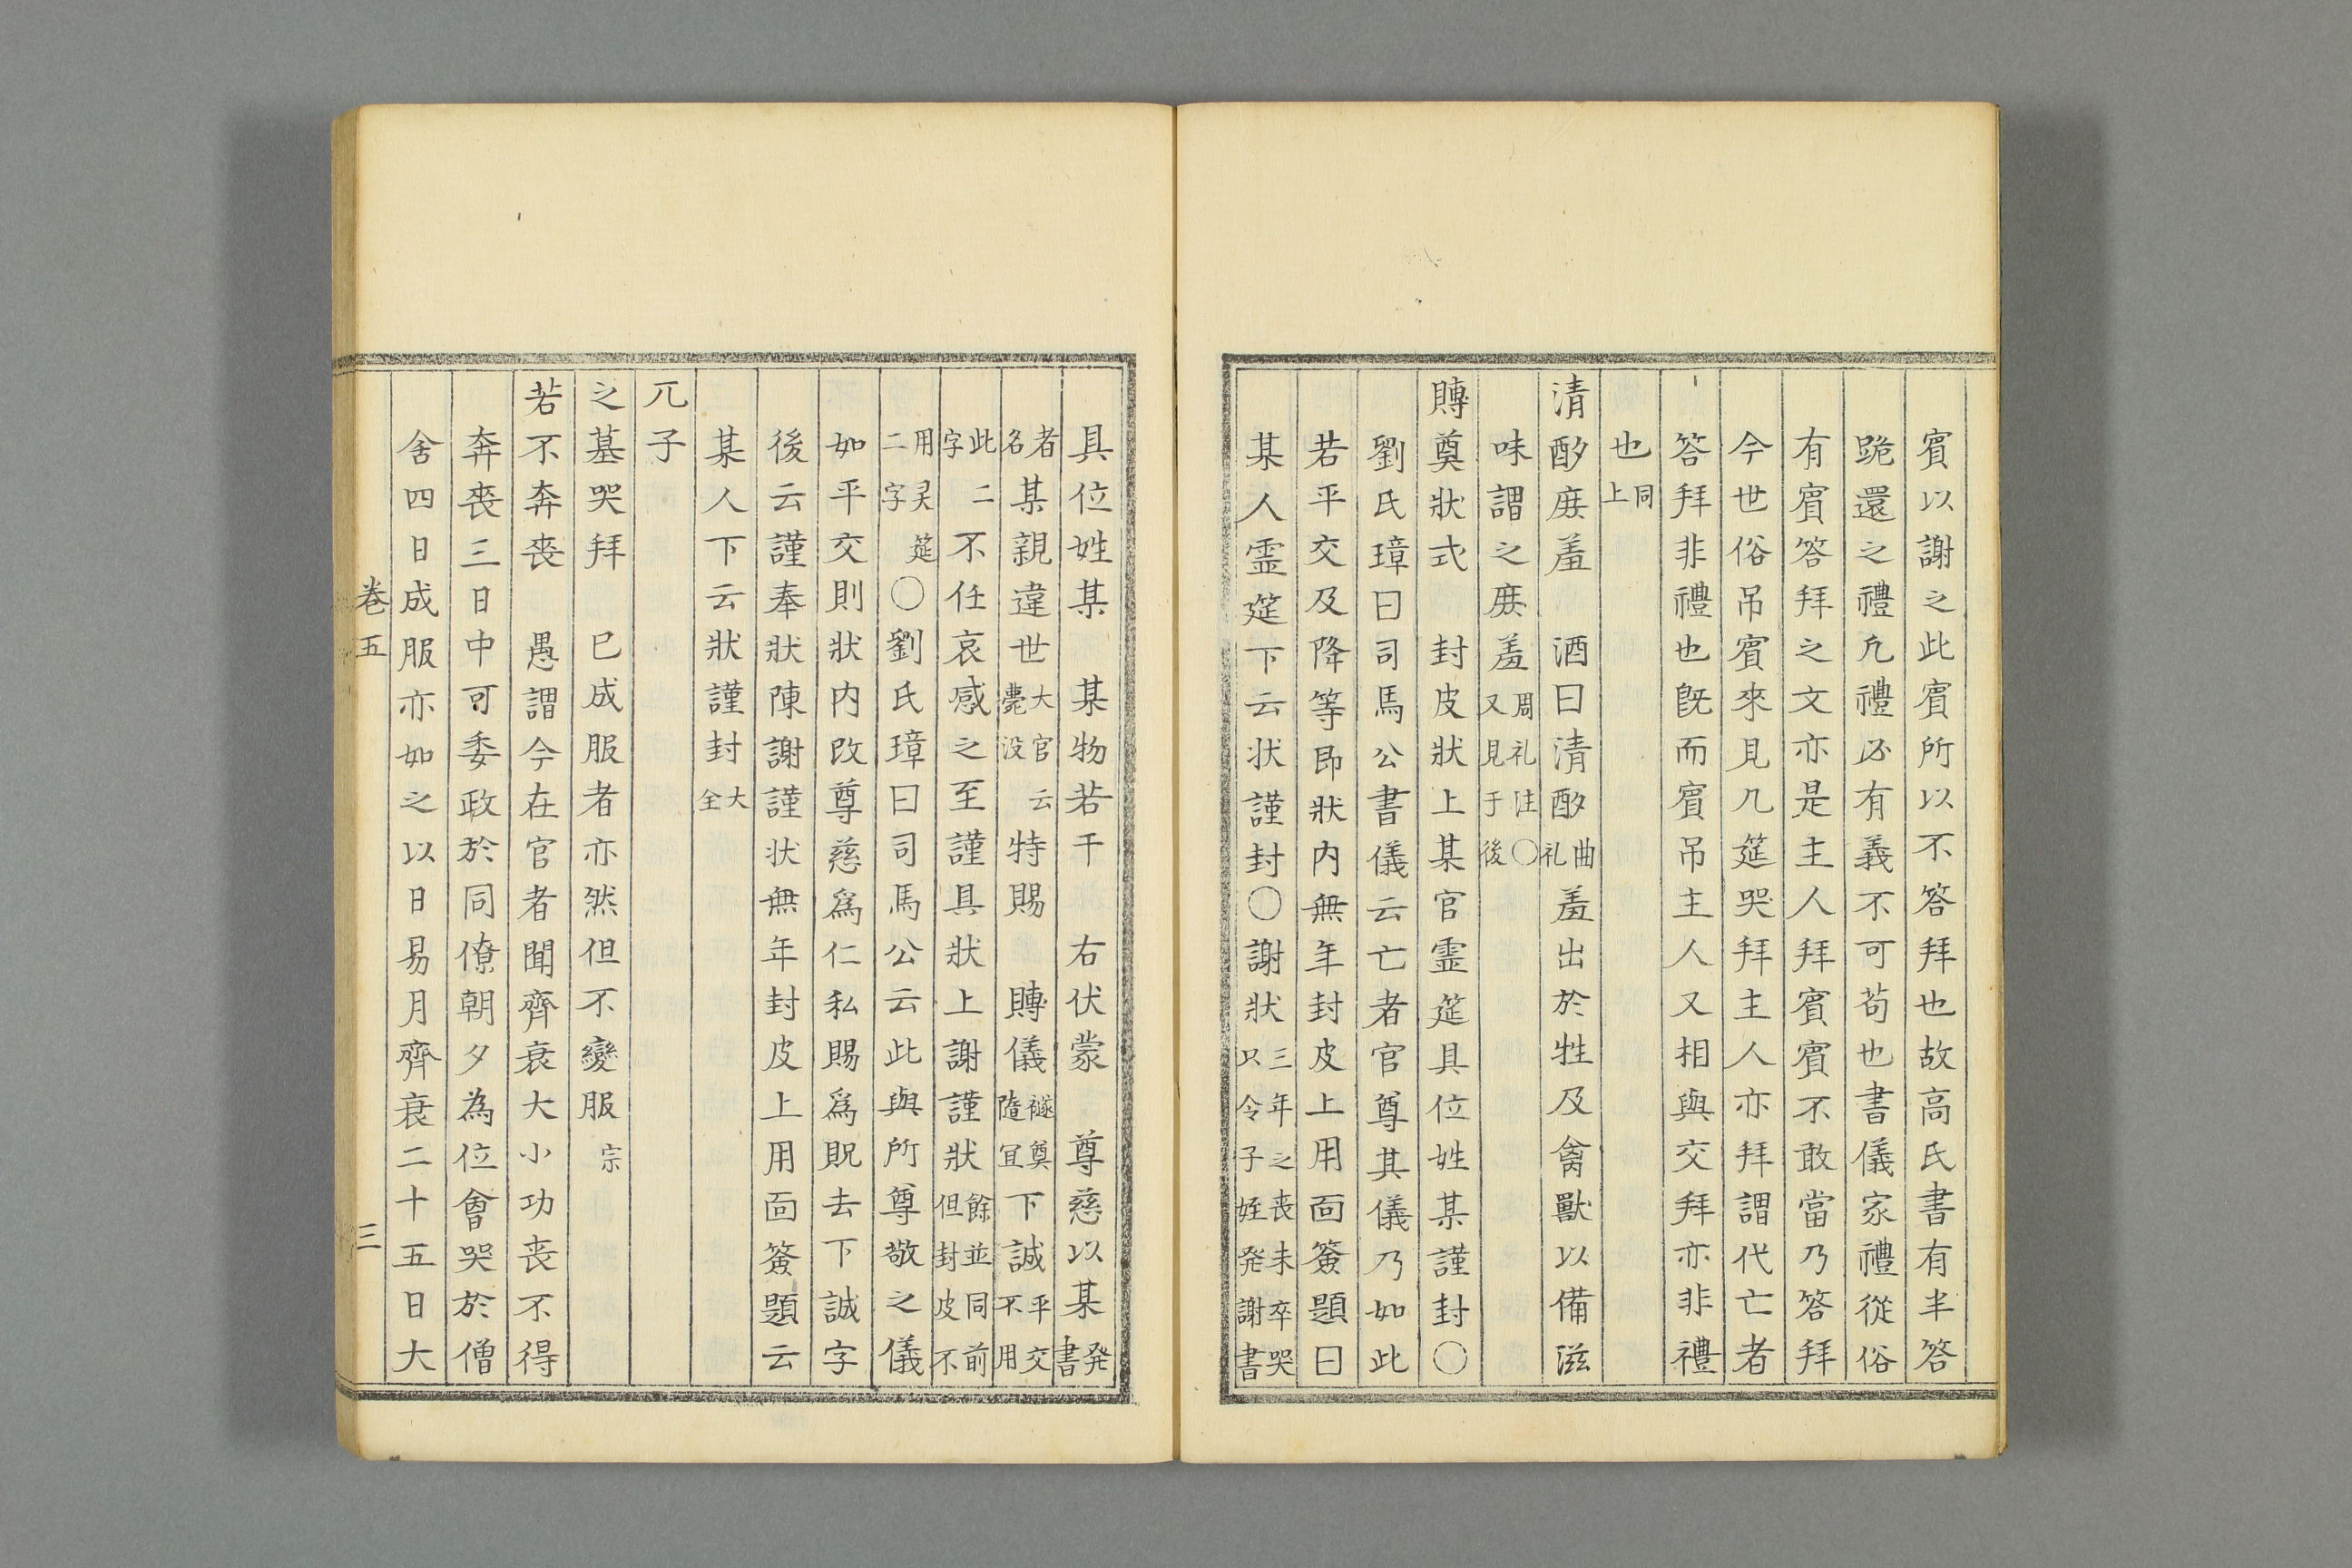 賓以謝之此賓所以不答拜也故高氏書有半答
跪還之禮凢禮必有義不可苟也書儀家禮從俗
有賓答拜之文亦是主人拜賓賓不敢當乃答拜
今世俗吊賓來見几筵哭拜主人亦拜謂代亡者
答拜非禮也旣而賓吊主人又相與交拜亦非禮
也同上
清酌庶羞 酒曰清酌曲礼羞出於牲及禽獸以備滋
味謂之庶羞周礼注〇又見于後
賻奠狀式 封皮狀上某官霊筵具位姓某謹封〇
劉氏璋曰司馬公書儀云亡者官尊其儀乃如此
若平交及降等即狀内無年封皮上用面簽題曰
某人霊筵下云状謹封〇謝狀三年之丧未卒哭只令子姪発謝書
具位姓某 某物若干 右伏蒙 尊慈以某発書
者名某親違世大官云薨没特賜 賻儀襚奠隨冝下誠平交不用
此二字不任哀感之至謹具狀上謝謹狀餘並同前但封皮不
用灵筵二字〇劉氏璋曰司馬公云此與所尊敬之儀
如平交則狀内改尊慈爲仁私賜爲貺去下誠字
後云謹奉狀陳謝謹状無年封皮上用面簽題云
某人下云狀謹封大全
兀子
之墓哭拜 已成服者亦然但不變服宗
若不奔丧 愚謂今在官者聞齊衰大小功丧不得
奔丧三日中可委政於同僚朝夕為位會哭於僧
舍四日成服亦如之以日易月齊衰二十五日大
卷五
三